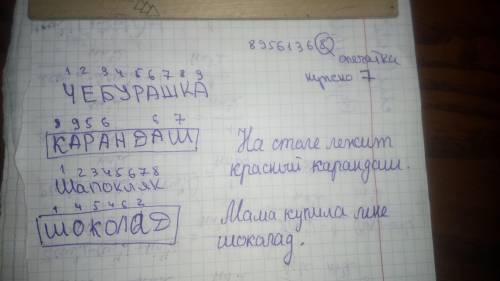 8956136 8
опечатка
нужно 7
1 2 3 4 5 6 7 8 9
ЧЕБУРАШКА
8 9 5 6 6 7
КАРАНДАШ
1 2 3 4 5 6 7 8
Шапокляк
1 4 5 4 6 2
ШОКОЛАД
На столе лежит
красный карандаш.
Мама купила мне
шоколад.